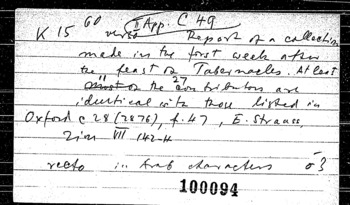 K 15 60 verso II App. C 49
Report of a collection
made in the first week after
the feast of Tabernacles. At least
11 of the 27 contributors are
identical with those listed in
Oxford c 28 (2876), f. 47, E. Strauss,
Zion VII 142-4
recto in Arab characters
100094